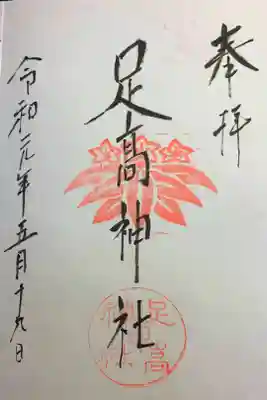 奉拝
足高神社
足高
神社
令和元年五月十九日